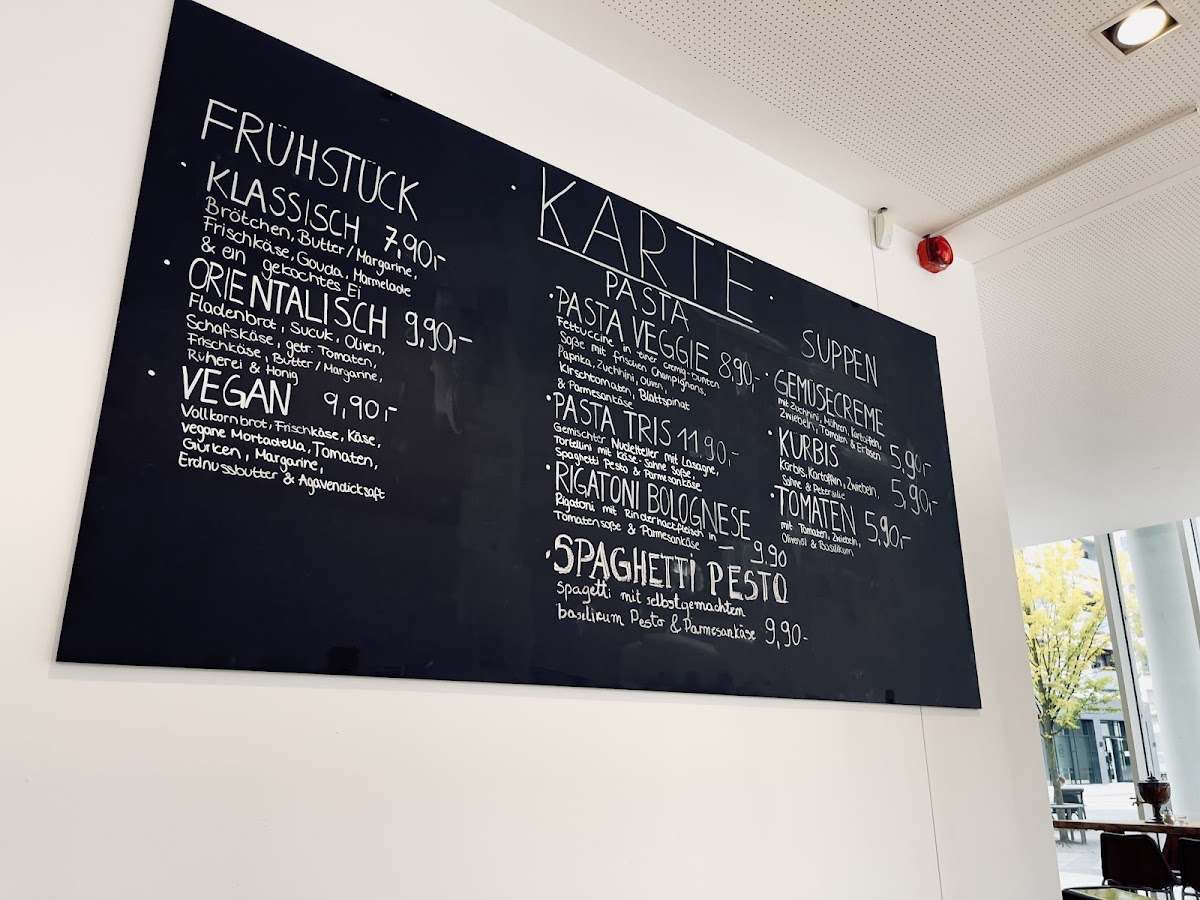 · KARTE ·
FRÜHSTÜCK
· KLASSISCH 7,90,-
Brötchen, Butter/Margarine,
Frischkäse, Gouda, Marmelade
& ein gekochtes Ei
· ORIENTALISCH 9,90,-
Fladenbrot, Sucuk, Oliven,
Schafskäse, getr. Tomaten,
Frischkäse, Butter/Margarine,
Rüherei & Honig
· VEGAN 9,90,-
Vollkornbrot, Frischkäse, Käse,
vegane Mortadella, Tomaten,
Gürken, Margarine,
Erdnussbutter & Agavendicksaft
PASTA
· PASTA VEGGIE 8,90,-
Fettuccine in einer cremig-bunten
Soße mit frischen Champignons,
Paprika, Zuchnini, Oliven,
Kirschtomaten, Blattspinat
& Parmesankäse
· PASTA TRIS 11,90,-
Gemischter Nudelteller mit Lasagne,
Tortellini mit Käse-Sahne Soße,
Spaghetti Pesto & Parmesankäse
· RIGATONI BOLOGNESE
Rigatoni mit Rinderhackfleisch in
Tomatensoße & Parmesankäse – 9,90
· SPAGHETTI PESTO
spagetti mit selbstgemachtem
basilikum Pesto & Parmesankäse 9,90-
SUPPEN
· GEMÜSECREME
mit Zuchnini, Möhren, Kartoffeln,
Zwiebeln, Tomaten & Erbsen 5,90,-
· KÜRBIS
Kürbis, Kartoffeln, Zwiebeln,
Sahne & Petersilie 5,90,-
· TOMATEN 5,90,-
mit Tomaten, Zwiebeln,
Olivenöl & Basilikum